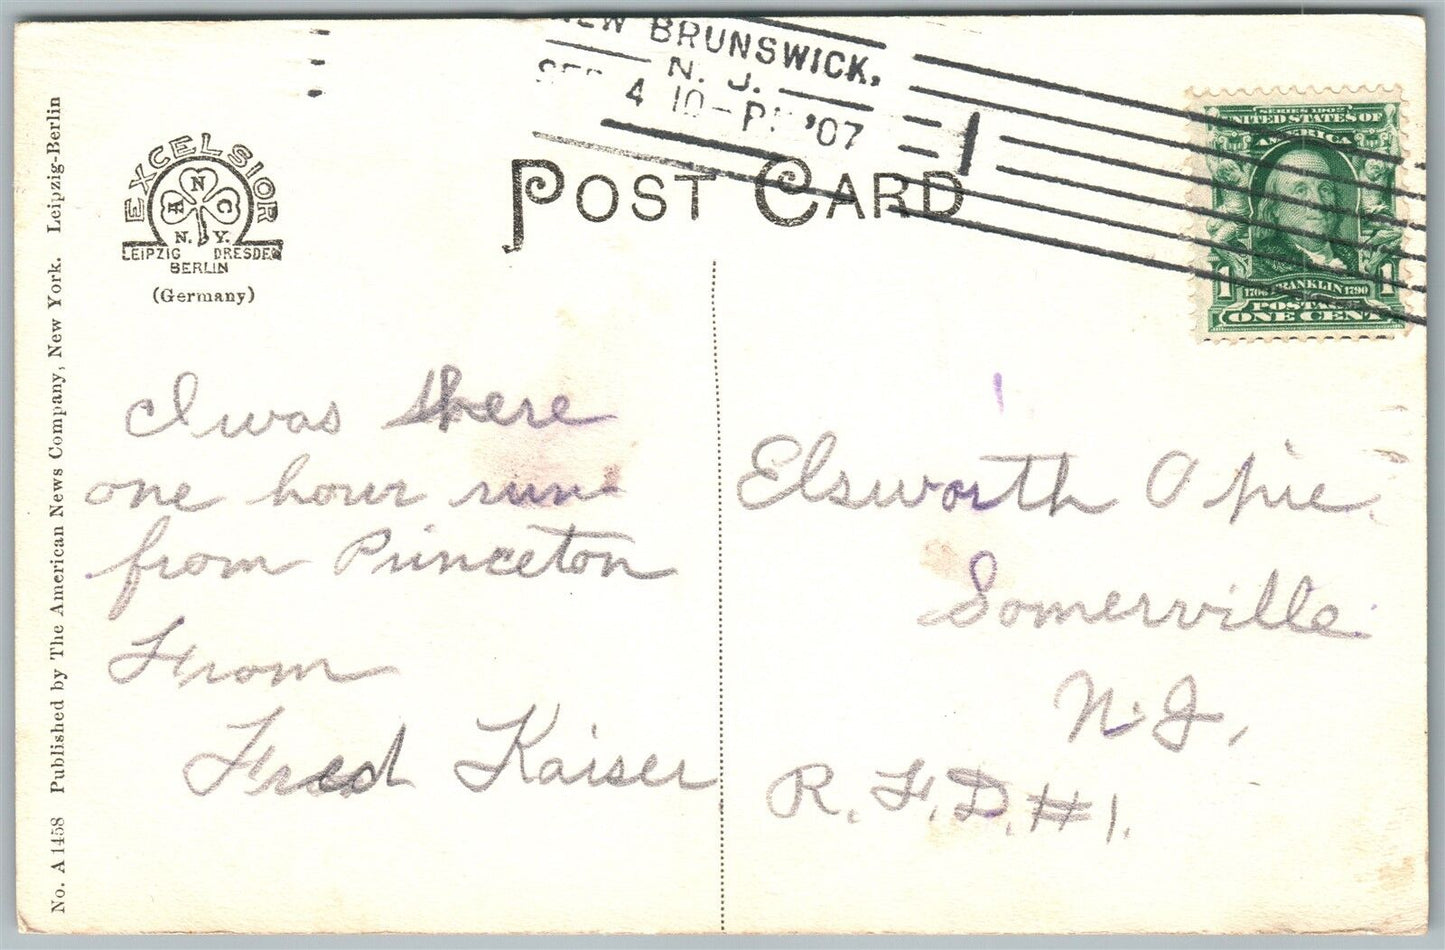 NEW BRUNSWICK,
N. J.
SEP 4 10-P '07
1
SERIES 1902
UNITED STATES OF
AMERICA
1 1
1706 FRANKLIN 1790
POSTAGE
ONE CENT
POST CARD
EXCELSIOR
N
A C
N. Y.
LEIPZIG DRESDEN
BERLIN
(Germany)
No. A 1458 Published by The American News Company, New York. Leipzig-Berlin
I was there
one hour run
from Princeton
From
Fred Kaiser
Elsworth Opie.
Somerville
N. J.,
R. F. D. #1.